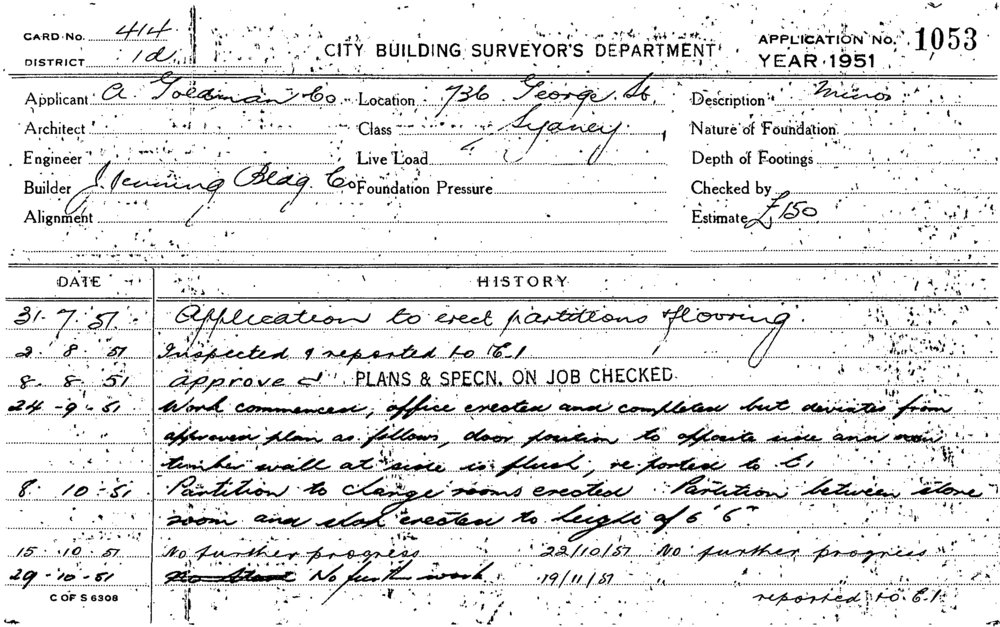 CARD No. 414
DISTRICT 1d
CITY BUILDING SURVEYOR'S DEPARTMENT
APPLICATION No. 1053
YEAR 1951
Applicant A Goldman Co Location 736 George St. Description Minor
Architect Class Sydney Nature of Foundation
Engineer Live Load Depth of Footings
Builder Bldg. Co Foundation Pressure Checked by
Alignment Estimate £150
DATE HISTORY
31. 7. 51. Application to erect partitions & flooring.
2. 8. 51 Inspected & reported to E.1
8. 8. 51 Approved PLANS & SPECN. ON JOB CHECKED
24-9-51 Work commenced, office erected and completed but deviates from
approved plan as follows, door position to opposite side and
timber wall at side is flush, reported to E1
8 10-51 Partition to change rooms erected Partition between store
room and shop erected to height of 6' 6"
15-10-51 No further progress 22/10/51 No further progress
29-10-51 No further work 19/11/51
C OF S 6308 reported to E.1